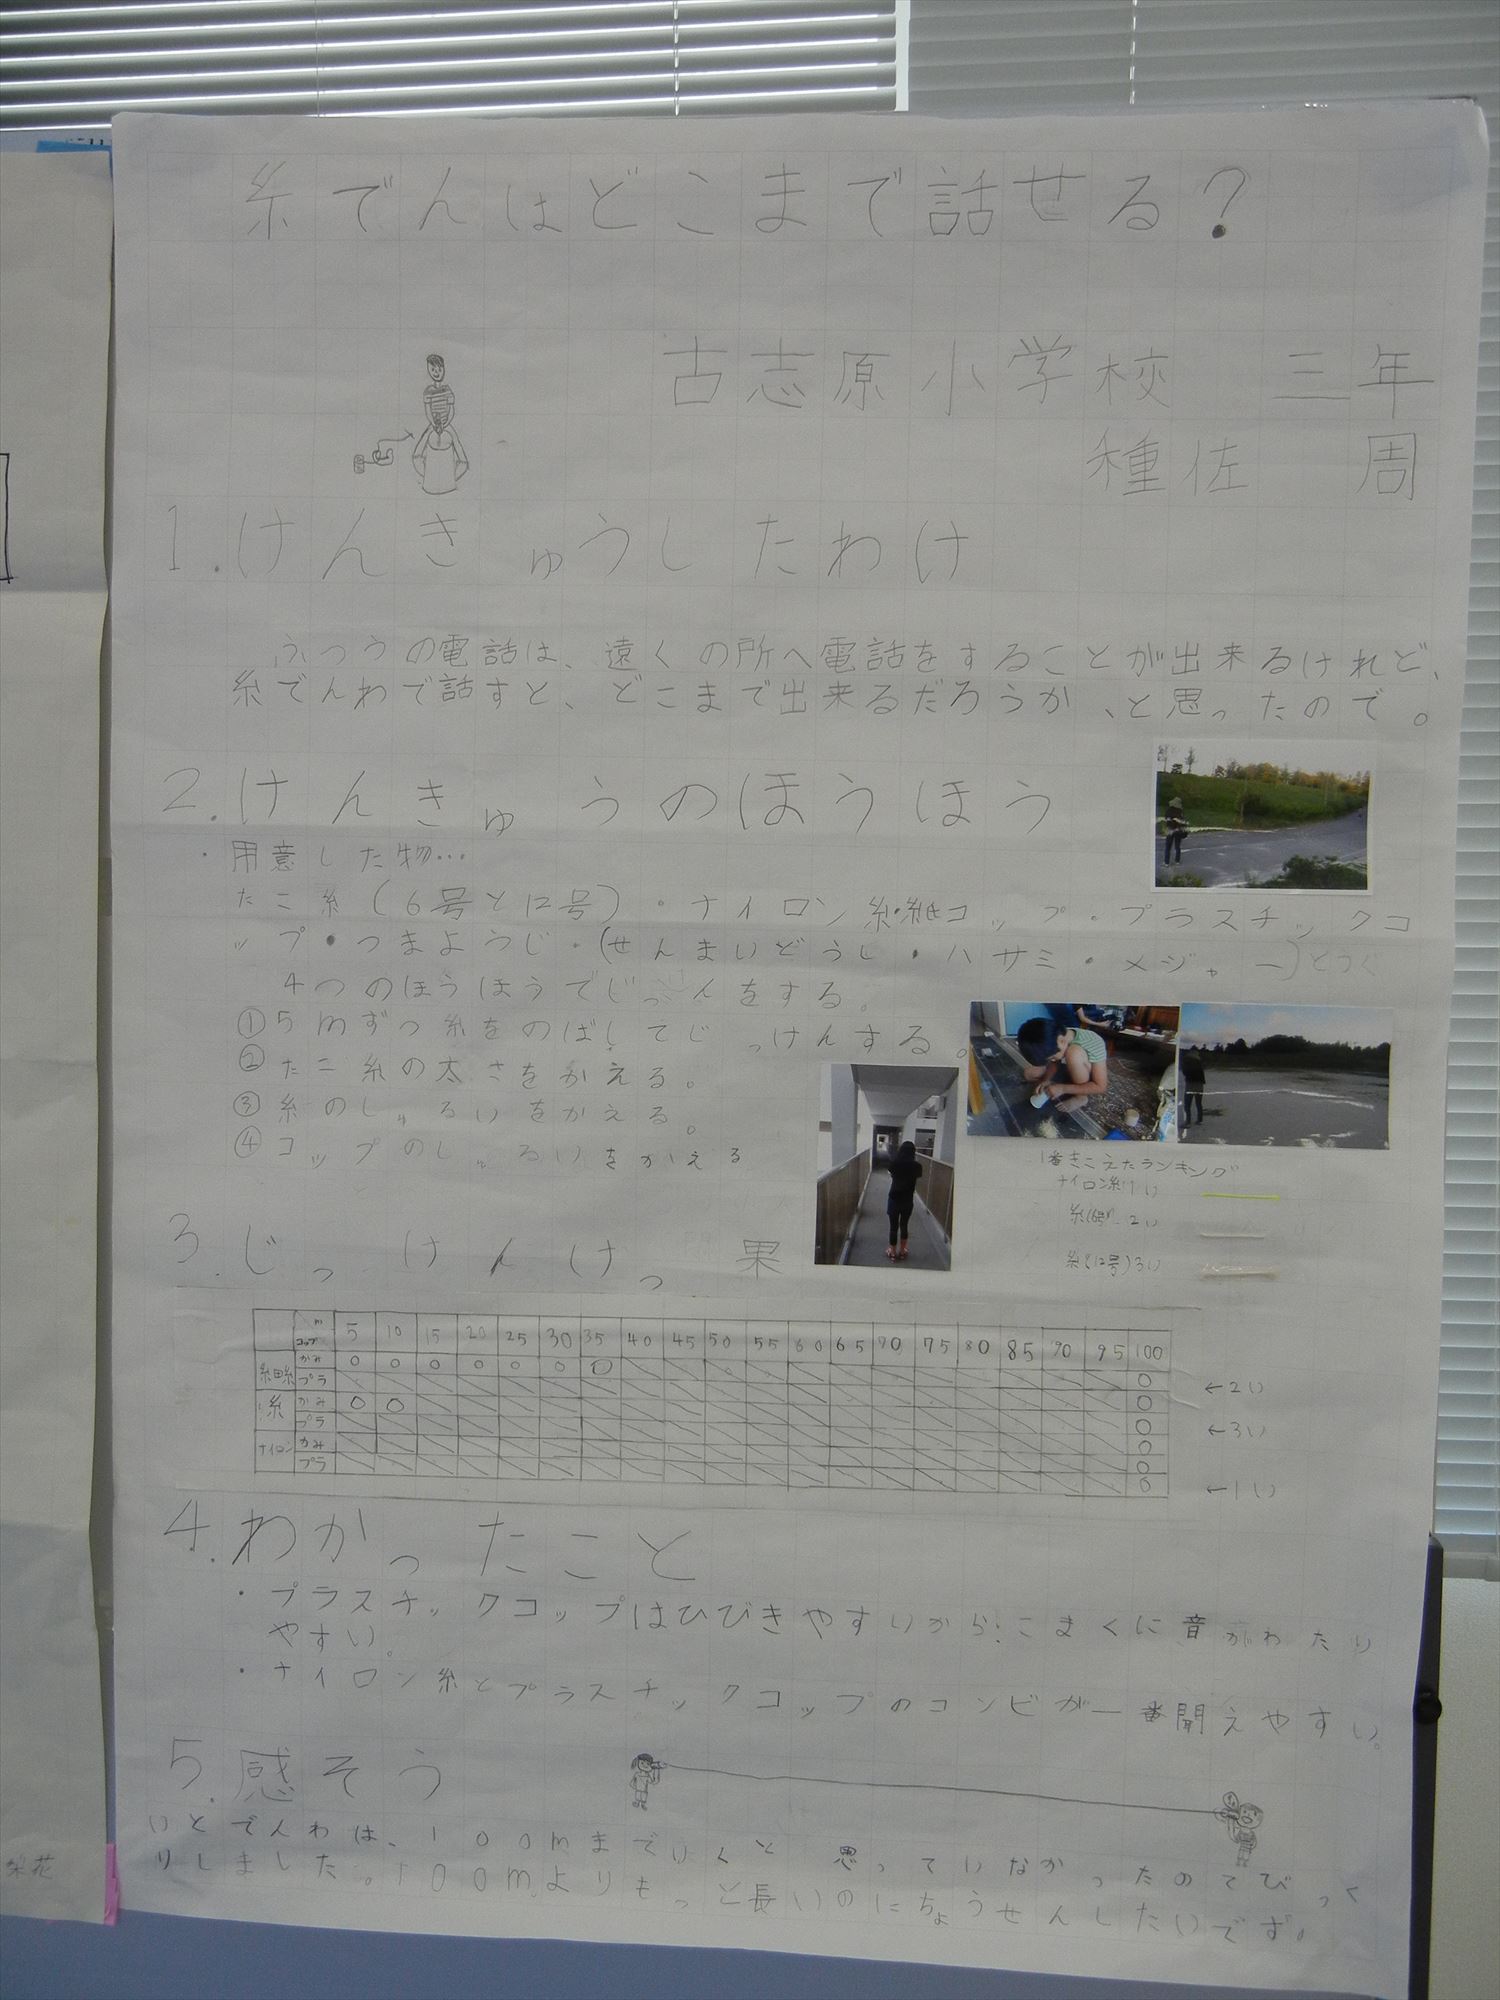 糸でんはどこまで話せる?
古志原小学校 三年
種佐 周
1.けんきゅうしたわけ
ふつうの電話は、遠くの所へ電話をすることが出来るけれど、
糸でんわで話すと、どこまで出来るだろうか、と思ったので。
2.けんきゅうのほうほう
・用意した物…
たこ糸(6号と12号)・ナイロン糸・紙コップ・プラスチックコ
ップ・つまようじ・(せんまいどうし・ハサミ・メジャー)どうぐ
4つのほうほうでじっけんをする。
①5mずつ糸をのばしてじっけんする。
②たこ糸の太さをかえる。
③糸のしゅるいをかえる。
④コップのしゅるいをかえる
1番きこえたランキング
ナイロン糸1い
糸(6号)2い
糸(12号)3い
3.じっけんけっ果
m コップ 5 10 15 20 25 30 35 40 45 50 55 60 65 70 75 80 85 90 95 100
細糸 かみ ○ ○ ○ ○ ○ ○ ○
プラ ○ ←2い
糸 かみ ○ ○ ○
プラ ○ ←3い
ナイロン かみ ○
プラ ○ ←1い
4.わかったこと
・プラスチックコップはひびきやすいから、こまくに音がわたり
やすい。
・ナイロン糸とプラスチックコップのコンビが一番聞えやすい。
5.感そう
いとでんわは、100mまでいくと思っていなかったのでびっく
りしました。100mよりもっと長いのにちょうせんしたいです。
梨花